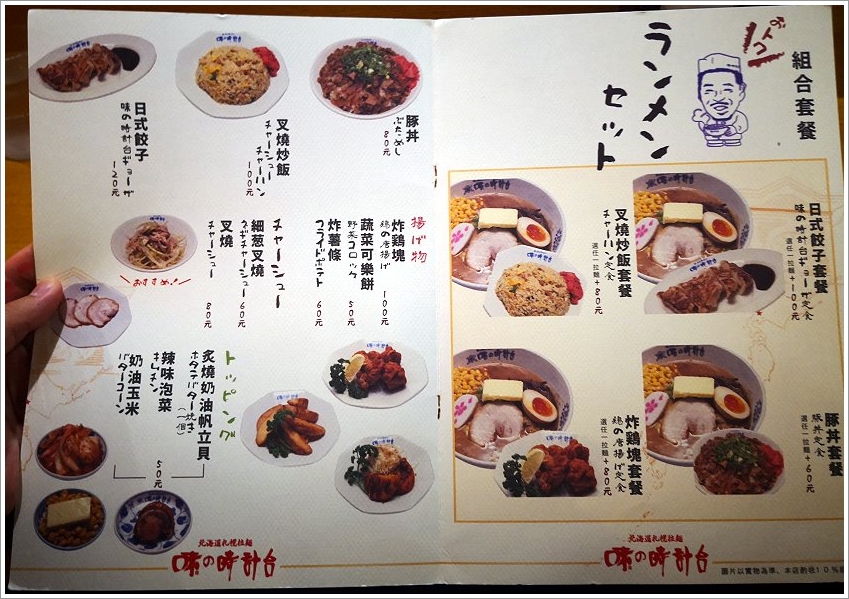 組合套餐
おトク
ラーメン
セット
日式餃子套餐
味の時計台ギョーザ定食
選任一拉麵+100元
叉燒炒飯套餐
チャーハン定食
選任一拉麵+80元
豚丼套餐
豚丼定食
選任一拉麵+60元
炸鷄塊套餐
鶏の唐揚げ定食
選任一拉麵+80元
北海道札幌拉麵
味の時計台
圖片以實物為準、本店酌收10%
豚丼
ぶためし
80元
叉燒炒飯
チャーシューチャーハン
100元
日式餃子
味の時計台ギョーザ
120元
揚げ物
炸鷄塊
鶏の唐揚げ
100元
蔬菜可樂餅
野菜コロッケ
50元
炸薯條
フライドポテト
60元
チャーシュー
細葱叉燒
ネギチャーシュー
60元
叉燒
チャーシュー
80元
おすすめ!
トッピング
炙燒奶油帆立貝
ホタテバター焼き(一個)
辣味泡菜
キムチ
奶油玉米
バターコーン
50元
北海道札幌拉麵
味の時計台